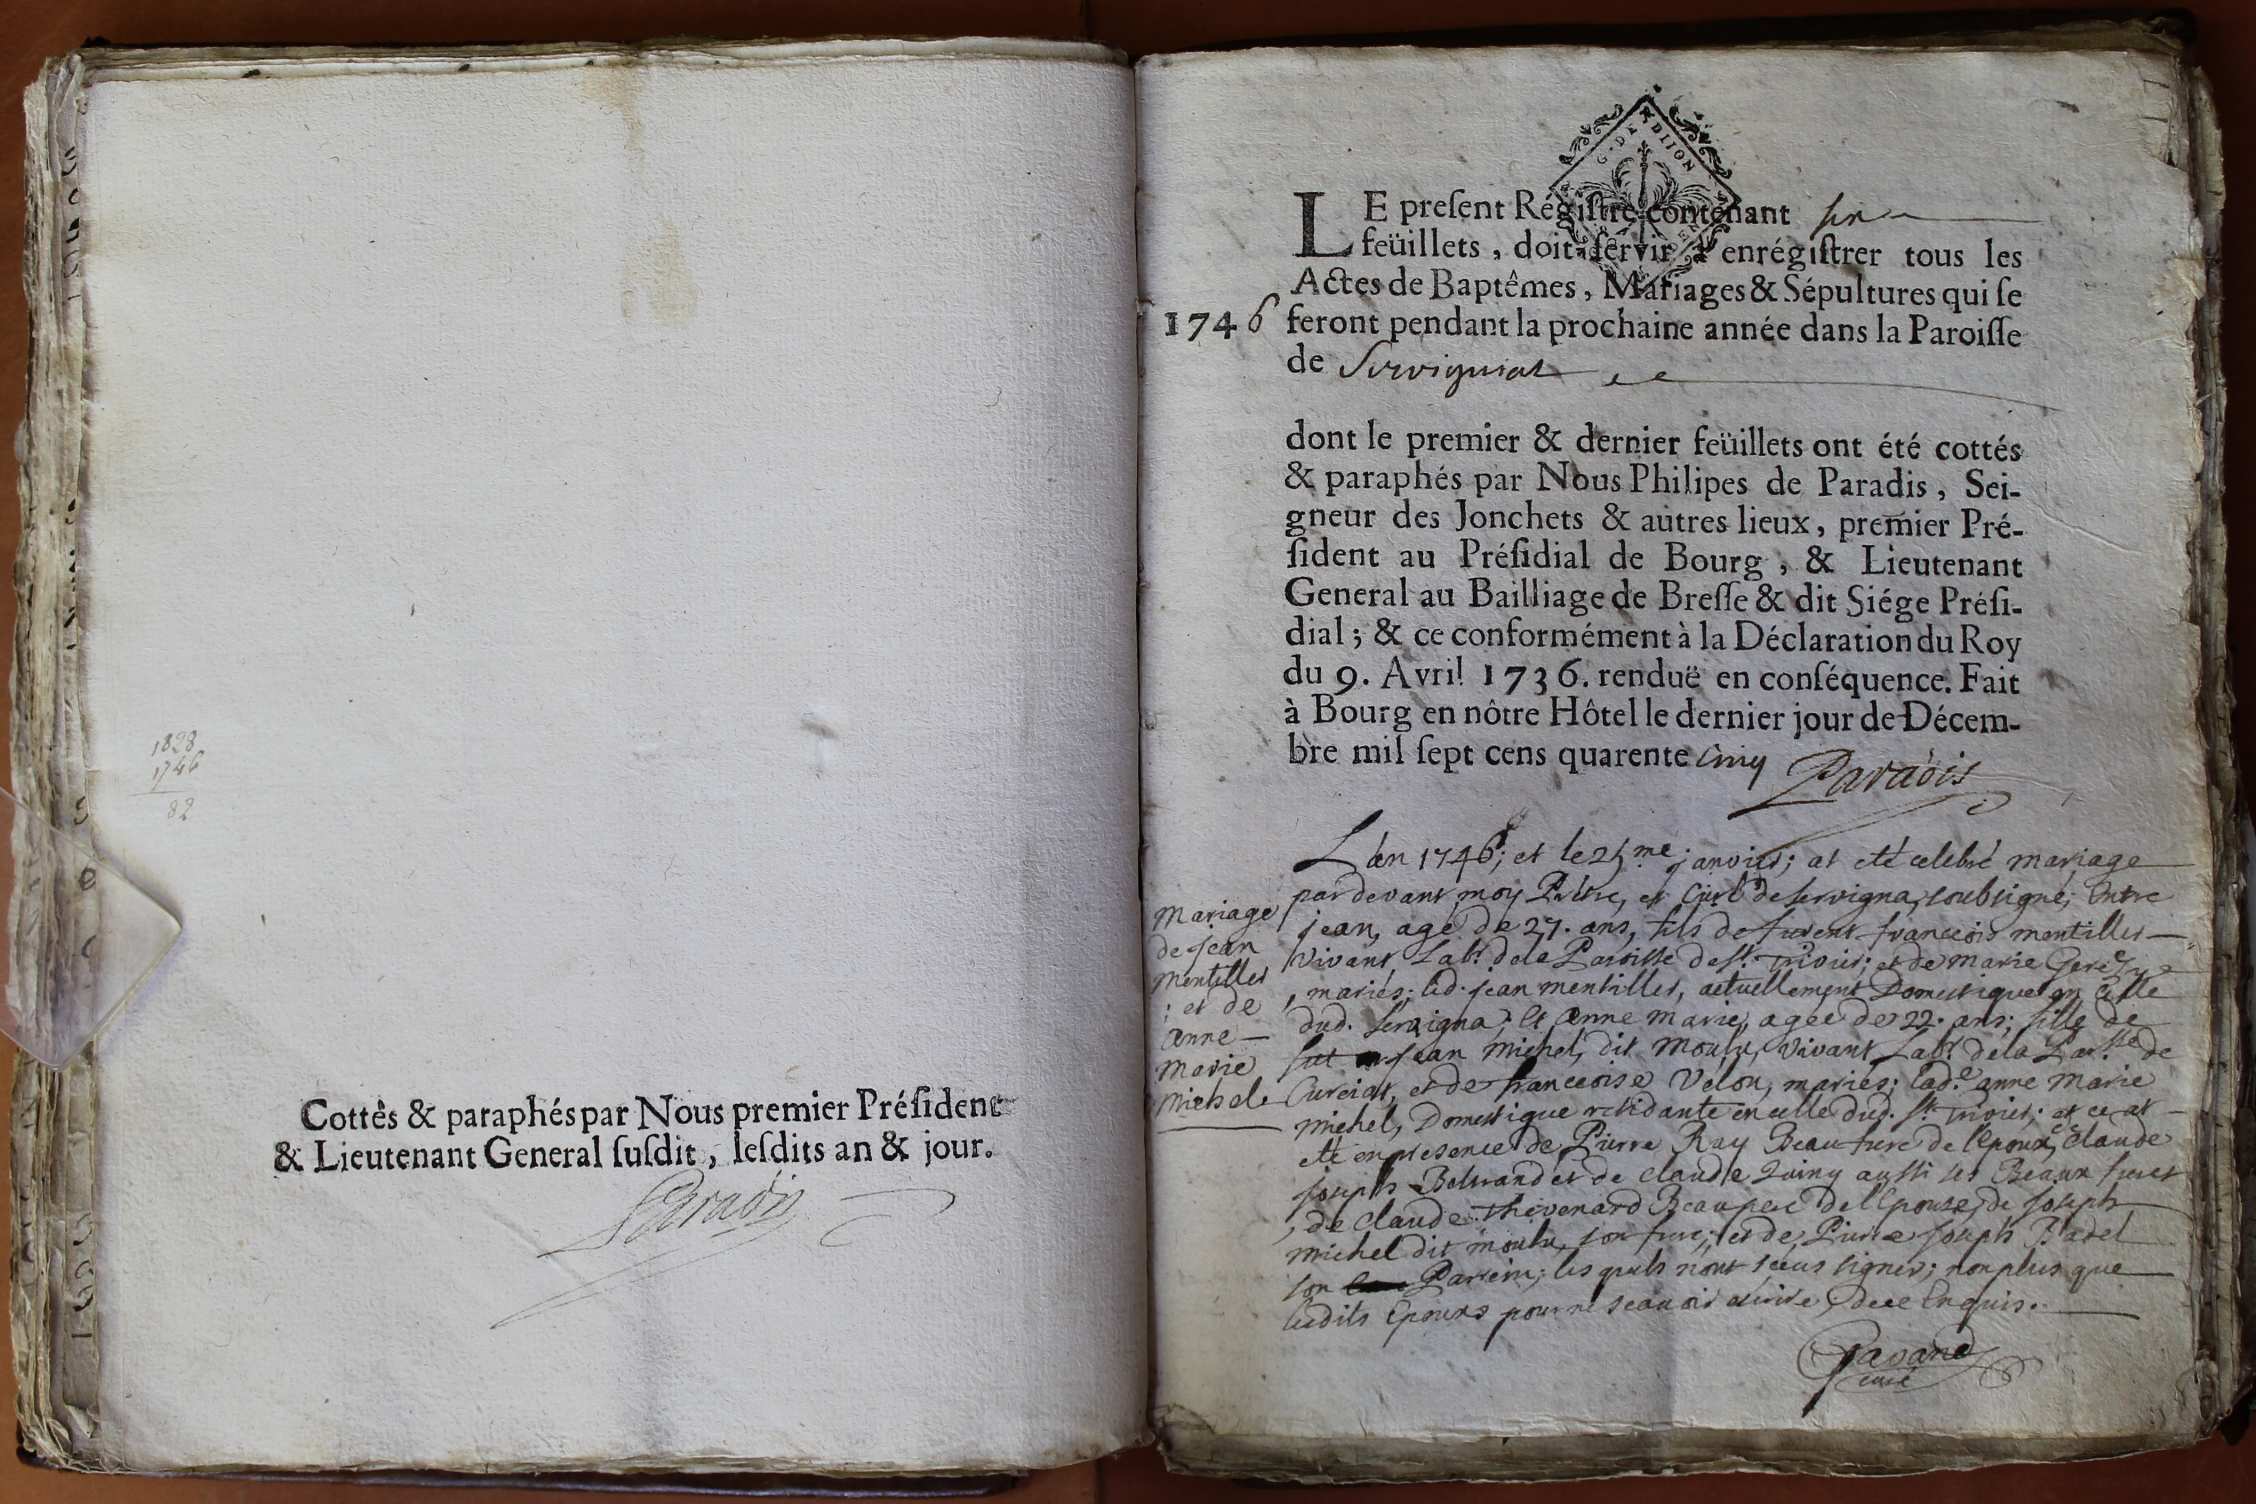 1828
1746
82
Cottés & paraphés par Nous premier Préſident
& Lieutenant General ſuſdit, leſdits an & jour.
Paradis
G. DE DIION
LE preſent Régiſtre contenant six
feüillets, doit ſervir à enrégiſtrer tous les
Actes de Baptêmes, Mariages & Sépultures qui ſe
1746 feront pendant la prochaine année dans la Paroiſſe
de Servignat
dont le premier & dernier feüillets ont été cottés
& paraphés par Nous Philipes de Paradis, Sei-
gneur des Jonchets & autres lieux, premier Pré-
ſident au Préſidial de Bourg, & Lieutenant
General au Bailliage de Breſſe & dit Siége Préſi-
dial; & ce conformément à la Déclaration du Roy
du 9. Avril 1736. renduë en conſéquence. Fait
à Bourg en nôtre Hôtel le dernier jour de Décem-
bre mil ſept cens quarente cinq
Paradis
Mariage
de jean
mentiller
; et de
anne
marie
michel
L'an 1746; et le 25me janvier; at eté celebré mariage
par devant moy Prêtre, et Curé de servigna, soubsigné; Entre
jean, agé de 27. ans, fils de françeois mentiller
vivant Labr. de la Paroisse de st. trivier; et de marie
, mariés; led. jean mentiller, actuellement Domestique en celle
dud. servigna; et anne marie, agée de 22. ans; fille de
jean michel, dit moulu, vivant Labr. de la Parsse de
Curciat, et de françeoise Velon, mariés; lade. anne marie
michel, Domestique residante en celle dud. st. trivier; et ce at
eté en presence de Pierre Ray Beaufrere de l'epoux, claude
joseph Beltrand et de claude aussi ses Beaux freres
, de claude thevenard Beaupere de l'epouse, de joseph
michel dit moulu, son frere; et de Pierre joseph Badel
son Parrein; les quels n'ont sceus signer; non plus que
lesdits Epoux pour ne sçeavoir écrire, de ce Enquis.
Pavand
curé